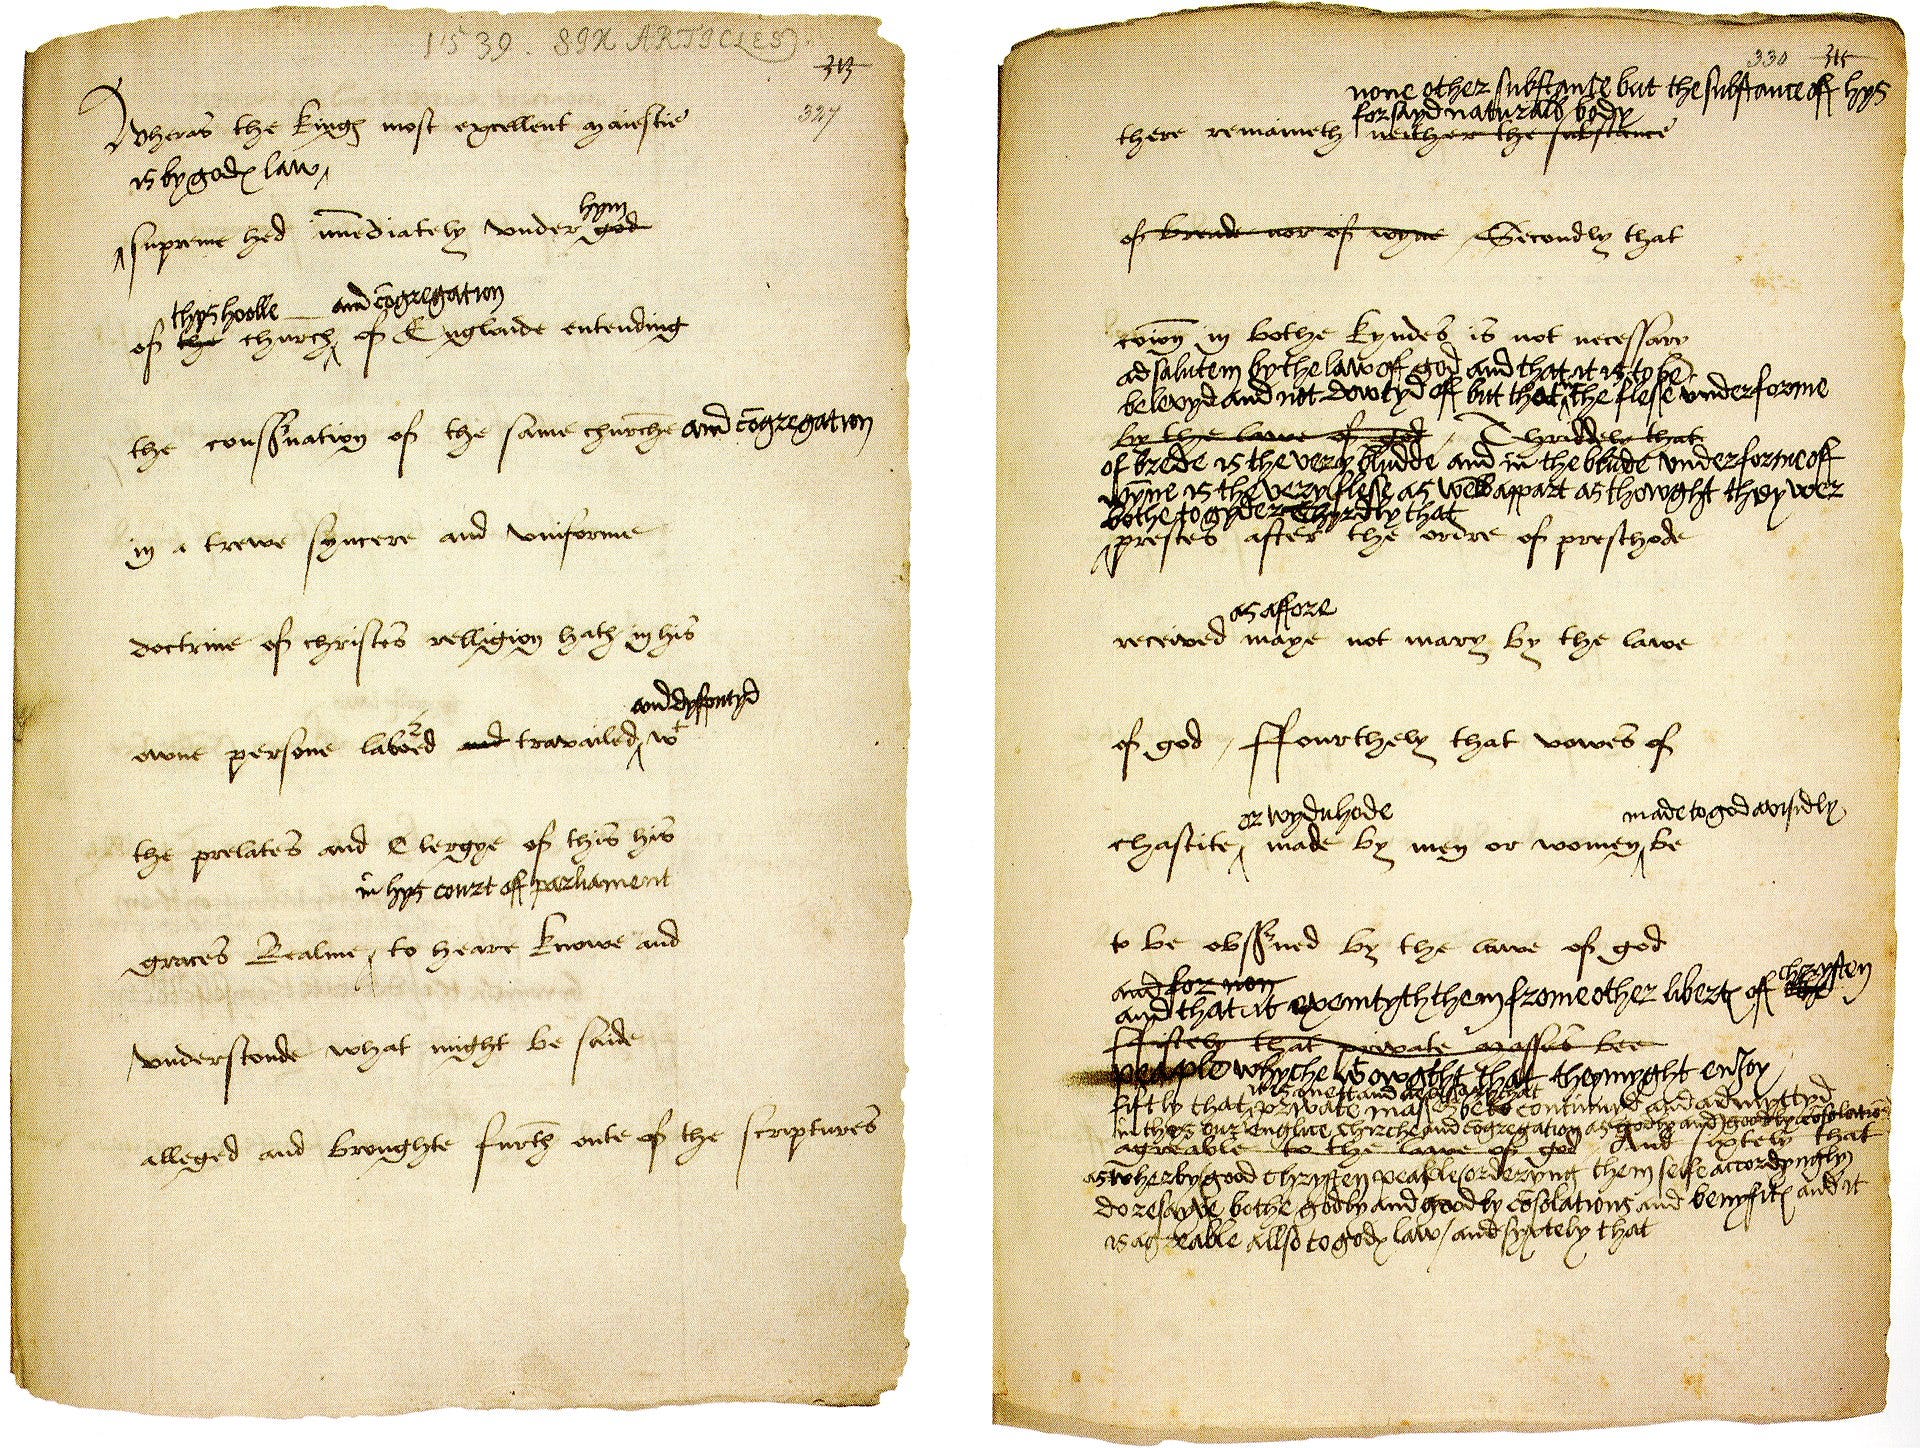 1539. SIX ARTICLES
313
327
Wheras the kinges most excellent maiestie
is by godes law
supreme hed immediately under hym god
thys hoolle and cogregation
of the church of Englande entending
the conservation of the same churche and cogregation
in a trewe syncere and uniforme
doctrine of christes relligion hath in his
and dysputyd
owne persone labored and travailed wt
the prelates and Clergye of this his
in hys court off parliament
graces Realme, to heare knowe and
understonde what might be saide
alleged and broughte furth oute of the scriptures
330 315
none other substance but the substance off hys
forsayd naturall body
there remaineth neither the substance
of breade nor of wyne, Secondly that
coion in bothe kyndes is not necessary
ad salutem by the law off god and that it is to be
belevyd and not dowtyd off but that in the flese under forme
by the lawe of god, Thriddely that
off brede is the very bludde and in the blude under forme off
wyne is the very flese as well appart as thowght they wer
bothe to gyder Thyrdly that
prestes after the ordre of presthode
as affore
received maye not mary by the lawe
of god, Ffourthely that vowes of
or wyduhode made to god avisidly
chastite, made by men or women, be
to be observed by the lawe of god
and for non
and that it exemtyth them frome other libertes off chrysten
Ffiftely that private masses bee
peaple whyche wowght that they myght enjoy
fiftly that private masses be continuyd and admyttyd
in thys our englice chirche and cogregation as godly and goodly cosolation
agreable to the lawe of god, And sixtely that
as wherby good chrysten peaple ordering them selfe accordyngly
do resayve bothe godly and goodly cosolations and benyfites and it
is agreable allso to godes law, and syxtely that